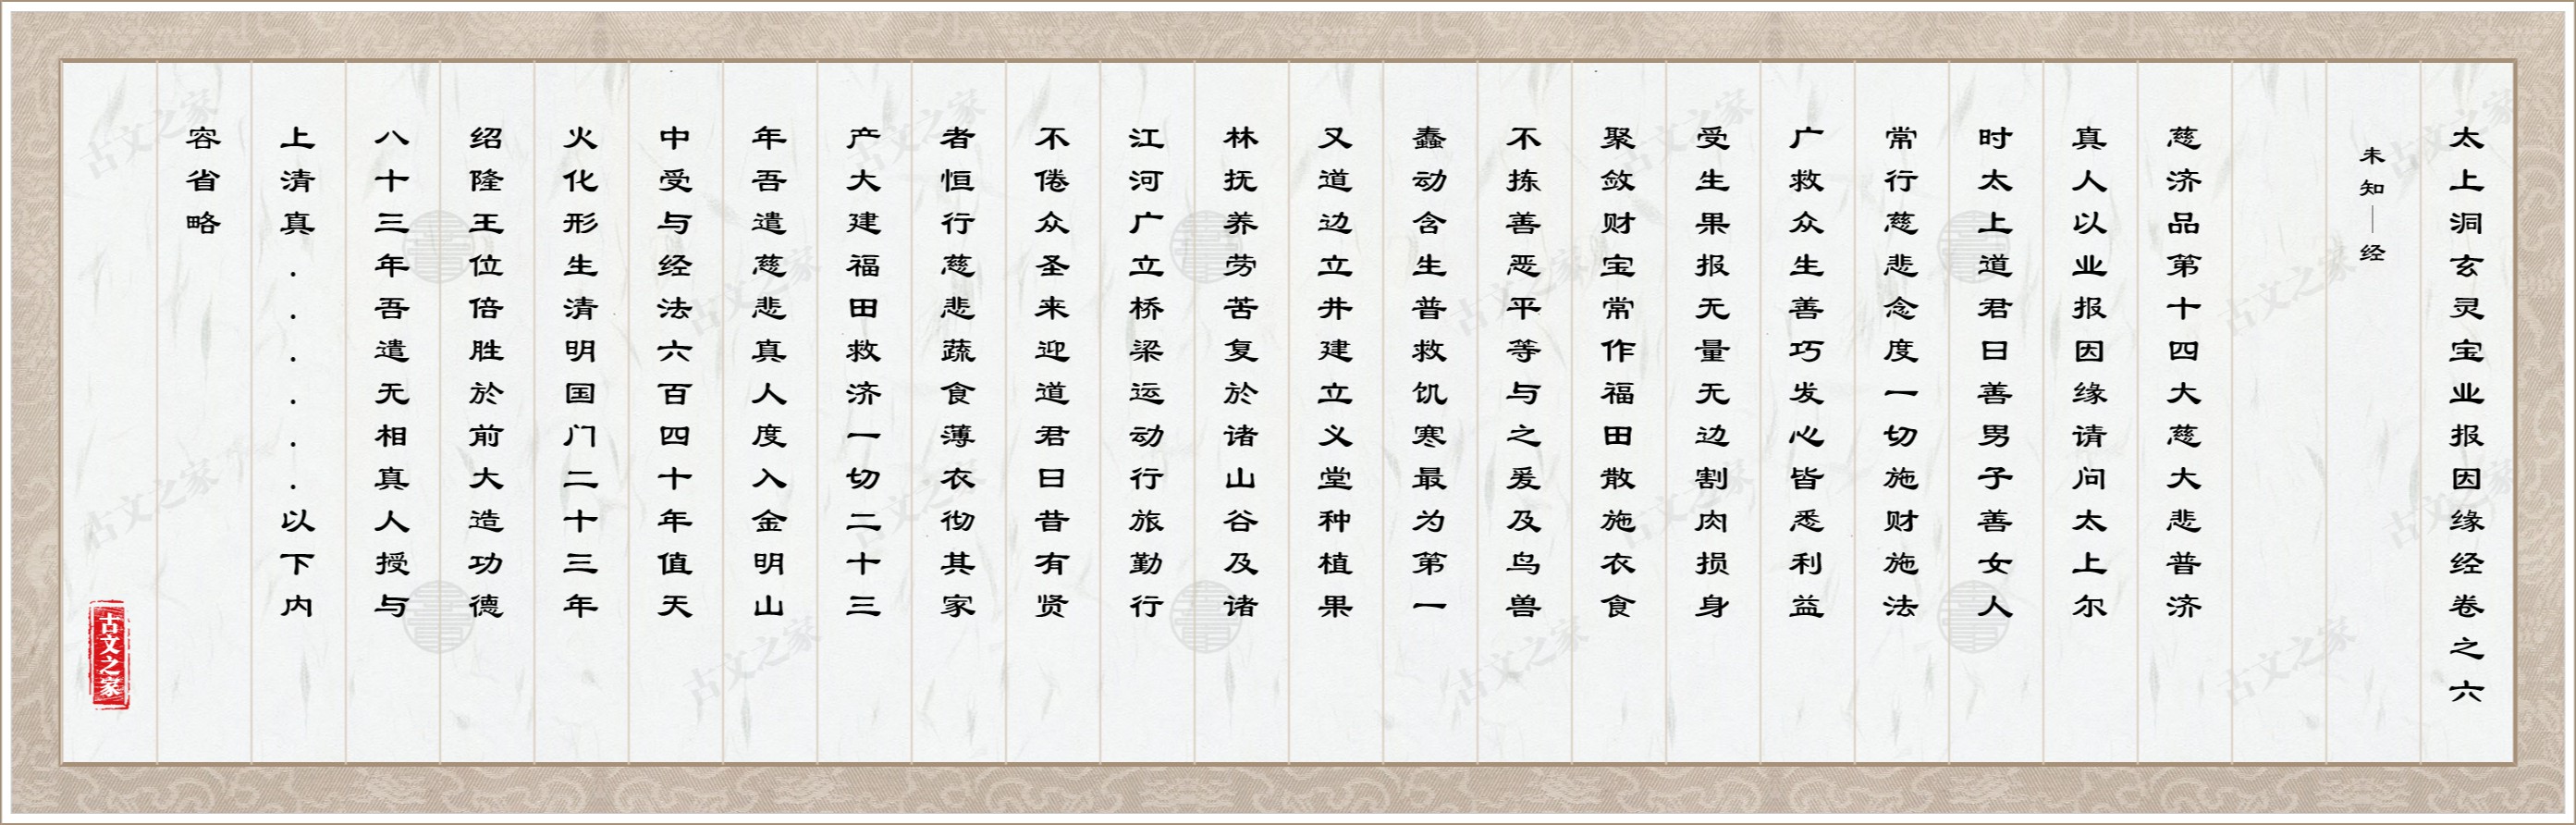 太上洞玄灵宝业报因缘经卷之六
未知｜经
慈济品第十四大慈大悲普济
真人以业报因缘请问太上尔
时太上道君曰善男子善女人
常行慈悲念度一切施财施法
广救众生善巧发心皆悉利益
受生果报无量无边割肉损身
聚敛财宝常作福田散施衣食
不拣善恶平等与之爰及鸟兽
蠢动含生普救饥寒最为第一
又道边立井建立义堂种植果
林抚养劳苦复於诸山谷及诸
江河广立桥梁运动行旅勤行
不倦众圣来迎道君曰昔有贤
者恒行慈悲蔬食薄衣彻其家
产大建福田救济一切二十三
年吾遣慈悲真人度入金明山
中受与经法六百四十年值天
火化形生清明国门二十三年
绍隆王位倍胜於前大造功德
八十三年吾遣无相真人授与
上清真．．．．．．以下内
容省略
古文之家